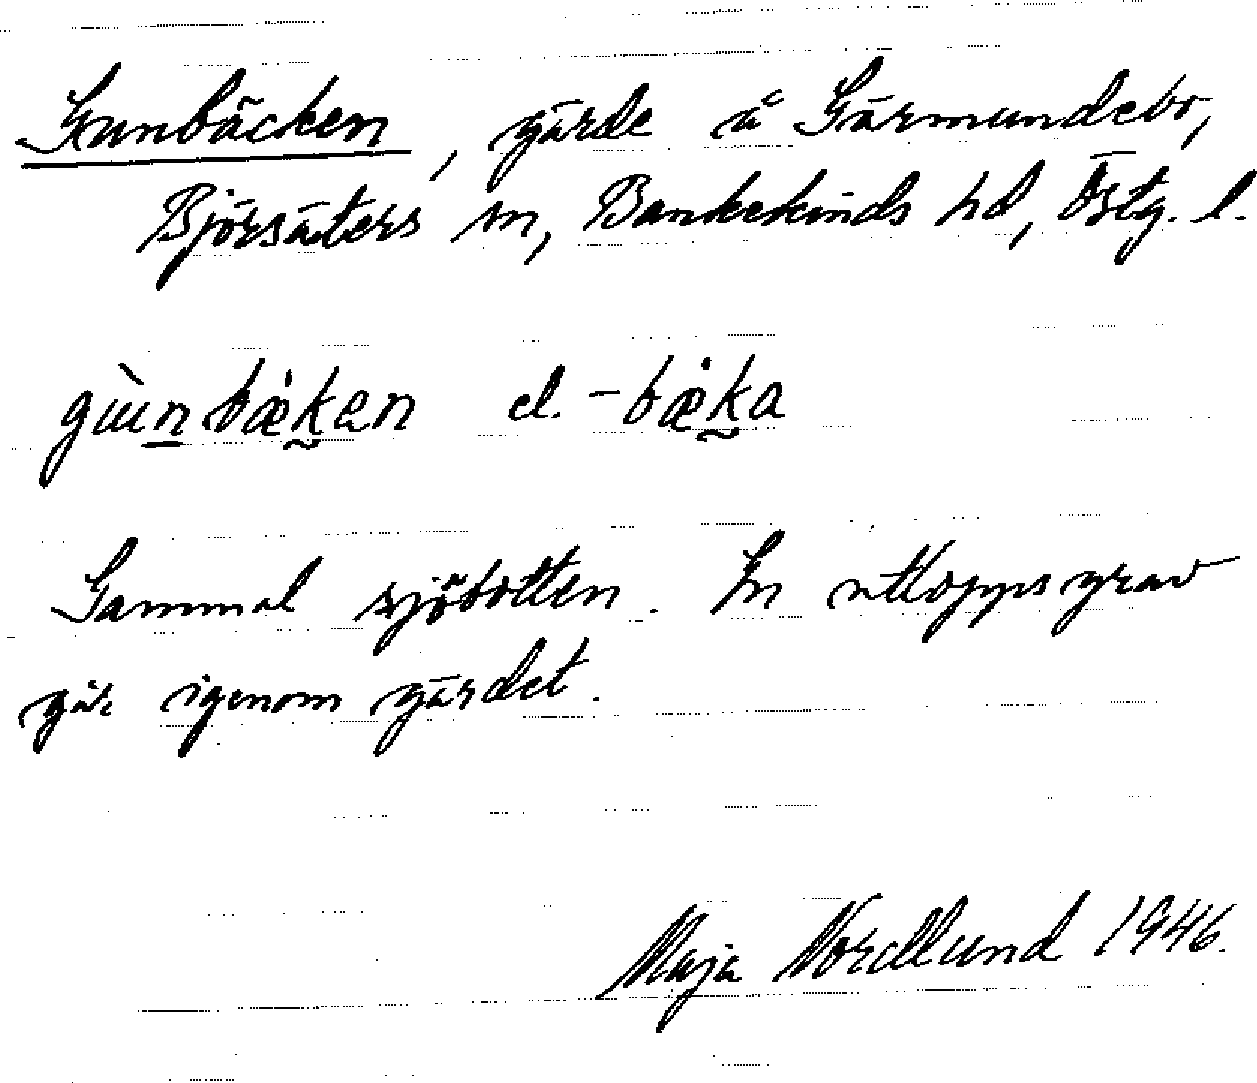 Gunbäcken, gärde å Gärmundebo,
Björsäters sn, Bankekinds hd, Östg. l.
gùnbæ̇ken el. -bæ̇ka
Gammal sjöbotten. En utloppsgrav
går igenom gärdet.
Maja Nordlund 1946.